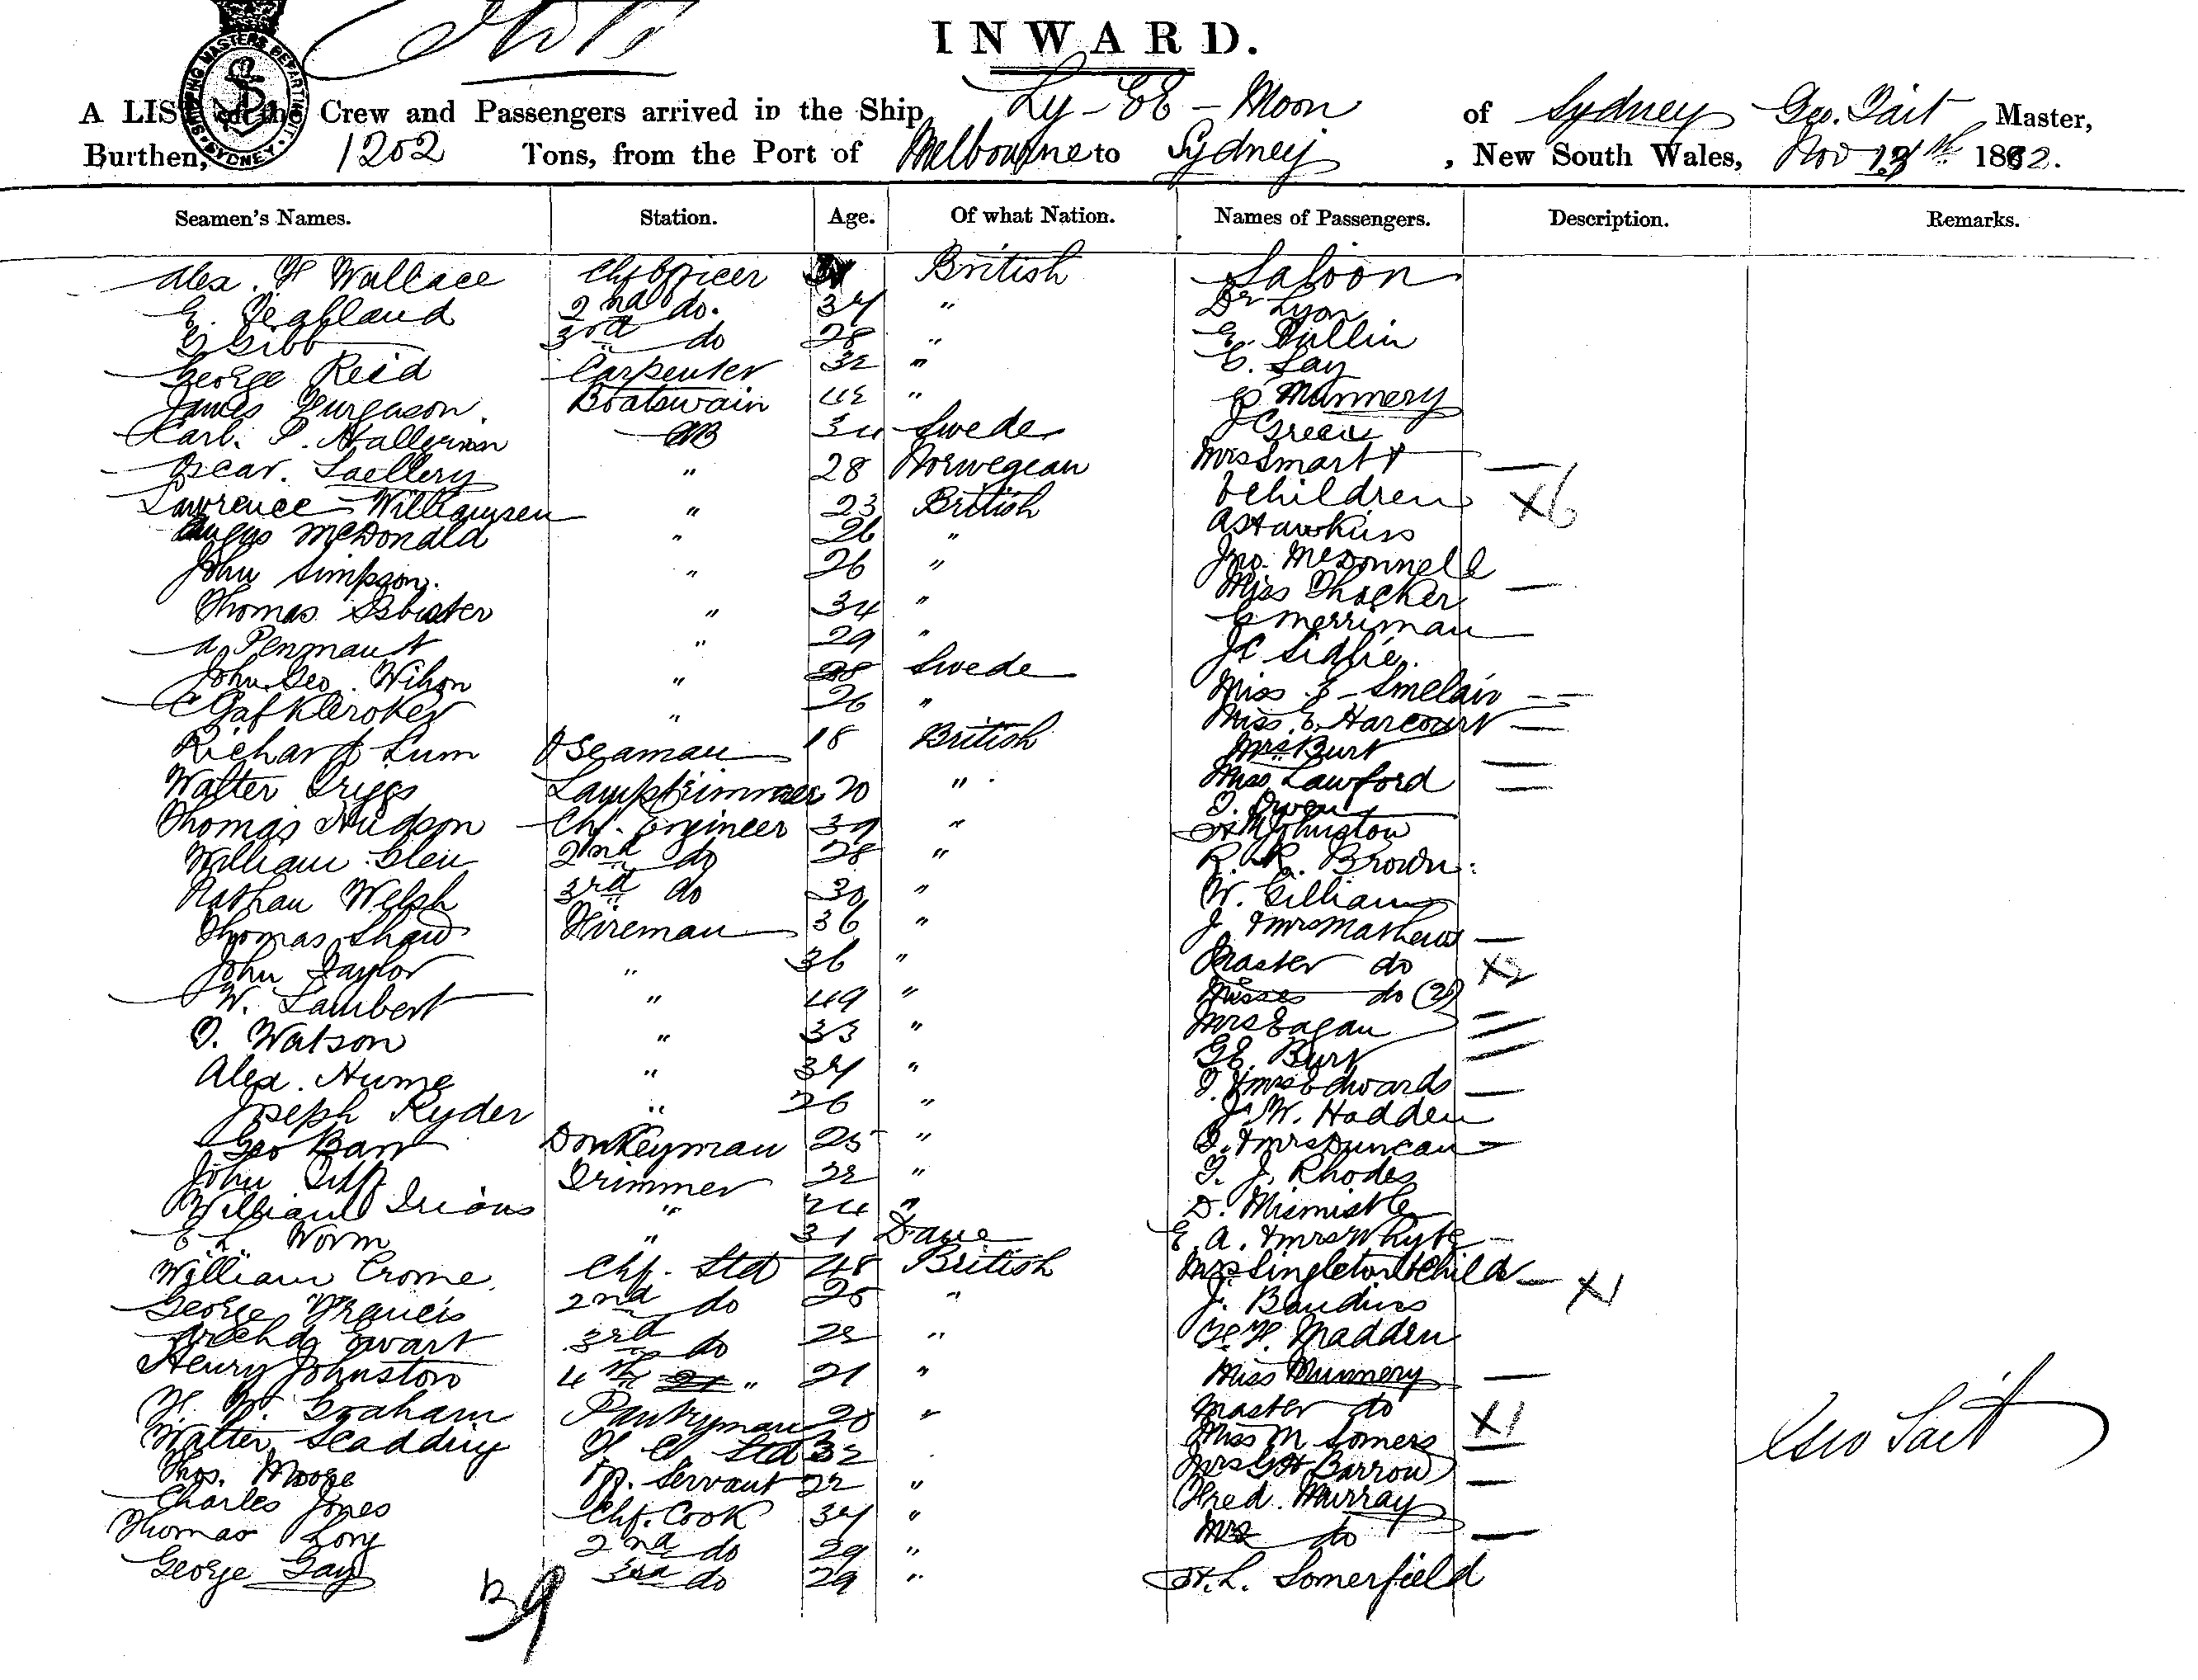 INWARD.
A LIS of the Crew and Passengers arrived in the Ship Ly-EE-Moon of Sydney Geo. Tait Master,
Burthen, 1202 Tons, from the Port of Melbourne to Sydney, New South Wales, Nov 13th 1882.
SHIPPING MASTERS DEPARTMENT SYDNEY
Seamen's Names. Station. Age. Of what Nation. Names of Passengers. Description. Remarks.
Alex. Wallace Chf Officer British Saloon
E. 2nd do. 34 " Dr Lyon
G Gibb 3rd do 28 " E. Pullin
George Reid Carpenter 32 " C. Lay
James Furgason. Boatswain 42 " Munnery
Carl. P. AB 34 Swede J Green
Oscar. " 28 Norwegean Mrs Smart &
Lawrence Williamsen " 23 British 6 children X6
Angus McDonald " 26 " A Hawkins
John Simpson. " 26 " Jno. McDonnell
Thomas Isbister " 34 " Miss Thacker
A Penmant " 29 " C Merriman
John Geo. Wilson " 28 Swede J C
" 26 " Miss Sinclair
Richard Lum O Seaman 18 British Miss E. Harcourt
Mrs Burt
Walter Griggs Lamptrimmer 20 " Miss Lawford
T. Owen
Thomas Hudson Chf. Engineer 39 " Johnston
William Glen 2nd do 28 " R. R. Brown
Nathan Welsh 3rd do 30 " W. Gilliam
Thomas Shaw Fireman 36 " J. & Mrs Mathews
John Taylor " 36 " Master do X2
W. Lambert " 49 " Misses do (2)
T. Watson " 33 " Mrs Eagan
Alex. Hume " 34 " G E. Burt
T. & Mrs Edwards
Joseph Ryder " 26 " J. W. Hadden
Geo Barr Donkeyman 25 " & Mrs Duncan
John Trimmer 22 " T. J. Rhodes
William Irions " 24 " D.
E L Worm " 31 Dane E. A. & Mrs Whyte
William Crome. Chf. Std 48 British Mrs Singleton & child X1
George Francis 2nd do 25 " J. Baudins
Archd Ewart 3rd do 22 " Madden
Henry Johnston 4th " 21 " Miss Munnery
Graham Pantryman 20 " Master do X1
Walter Scadding Std 32 Miss M Somers
Thos. Moore Servant 22 " Mrs G H Barrow
Charles Jones Chf. Cook 34 " Fred. Murray
Thomas Lory 2nd do 29 " Mrs do
George Gay 3rd do 29 " H. L. Somerfield
Geo Tait
39